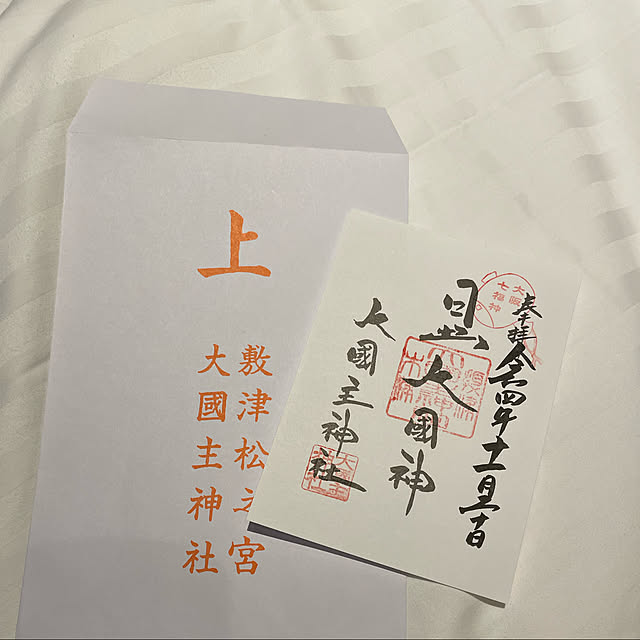 上
敷津松之宮
大國主神社
大阪
七福神
奉拝 令和四年十一月
日出大國神
大國主神社